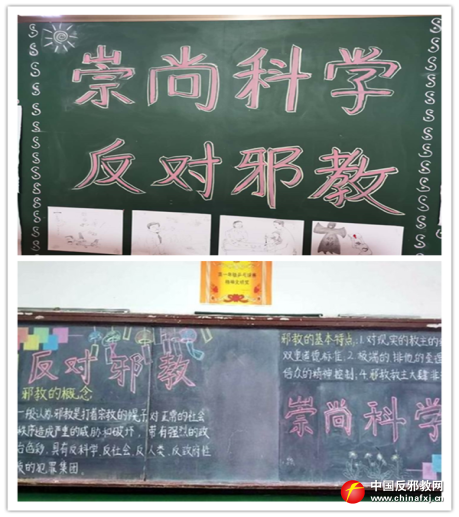 崇尚科学
反对邪教
反对邪教
邪教的概念
一般认为邪教是打着宗教的幌子对正常的社会
秩序造成严重的威胁和破坏,带有强烈的政
治色彩,具有反科学,反社会,反人类,反政府性
质的犯罪集团。
邪教的基本特点:1.对现实的教主的
双重道德标准.2.极端的排他的
信众的精神控制.4.邪教教主大肆
崇尚科学
中国反邪教网
www.chinafxj.cn